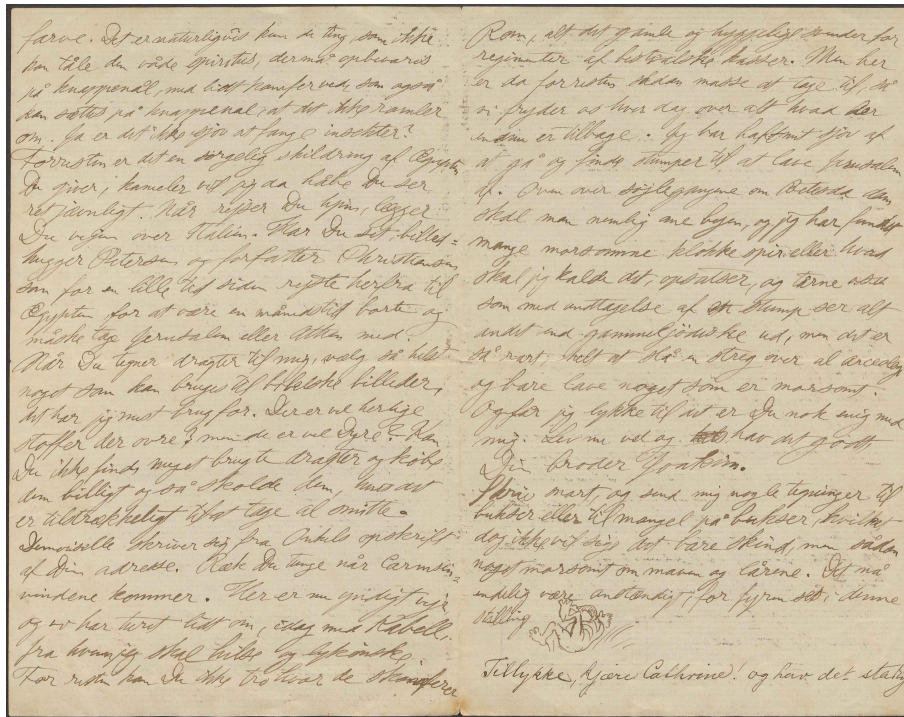 farve. Det er naturligvis kun de ting, som ikke
kan tåle den våde spiritus, der må opbevares
på knappenål, med lidt kamfer ved, som også
kan sættes på knappenål, at det ikke ramler
om. Ja er det ikke sjov at fange insekter?
Forresten er det en sørgelig skildring af Ægypten
Du giver, kameler vil jeg da håbe Du ser
ret jævnligt. Når rejser Du hjem, lægger
Du vejen over Italien. Har Du set billed=
hugger Petersen og forfatter Christiansen,
som for en lille tid siden rejste herfra til
Ægypten for at være en månedstid borte og
måske tage Jerusalem eller Athen med.
Når Du tegner dragter til mig, vælg så helst
noget som kan bruges til bibelske billeder,
det har jeg mest brug for. Der er vel herlige
stoffer der ovre? men de er vel dyre? Kan
Du ikke finde noget brugte dragter og købe
dem billigt og så skolde dem, hvis det
er tilstrækkeligt til at tage al smitte.
skriver sig fra Onkels opskrift
af Din adresse. Ræk Du tunge når
vindene kommer. Her er nu yndigt vejr
og vi har turet lidt om, idag med Rabell.
fra hvem jeg skal hilse og lykønske
For resten kan Du ikke tro hvor de skamferer
Rom, alt det gamle og hyggelige vender for
regimenter af kasser. Men her
er da forresten sådan masse at tage til, så
vi fryder os hver dag over alt hvad der
endnu er tilbage. Jeg har haft mit sjov af
at gå og finde stumper til at lave Jerusalem
af. Oven over søjlegangene om Betesda dam
skal man nemlig ane byen, og jeg har fundet
mange morsomme klokkespir eller hvad
skal jeg kalde det, opsatser, og tårne
som med undtagelse af en stump ser alt
andet end gammeljødiske ud, men det er
så rart, helt at slå en streg over al arceologi
og bare lave noget som er morsomt.
Og får jeg lykke til det er Du nok enig med
mig. Lev nu vel og hav det godt,
Din broder Joakim.
Skriv snart, og send mig nogle tegninger til
bukser eller til mangel på bukser, hvilket
dog ikke vil sige det bare skind, men sådan
noget morsomt om maven og lårene. Det må
endelig være anstændigt, for fyren ses i denne
stilling
Tillykke, kjære Cathrine! og hav det stadig